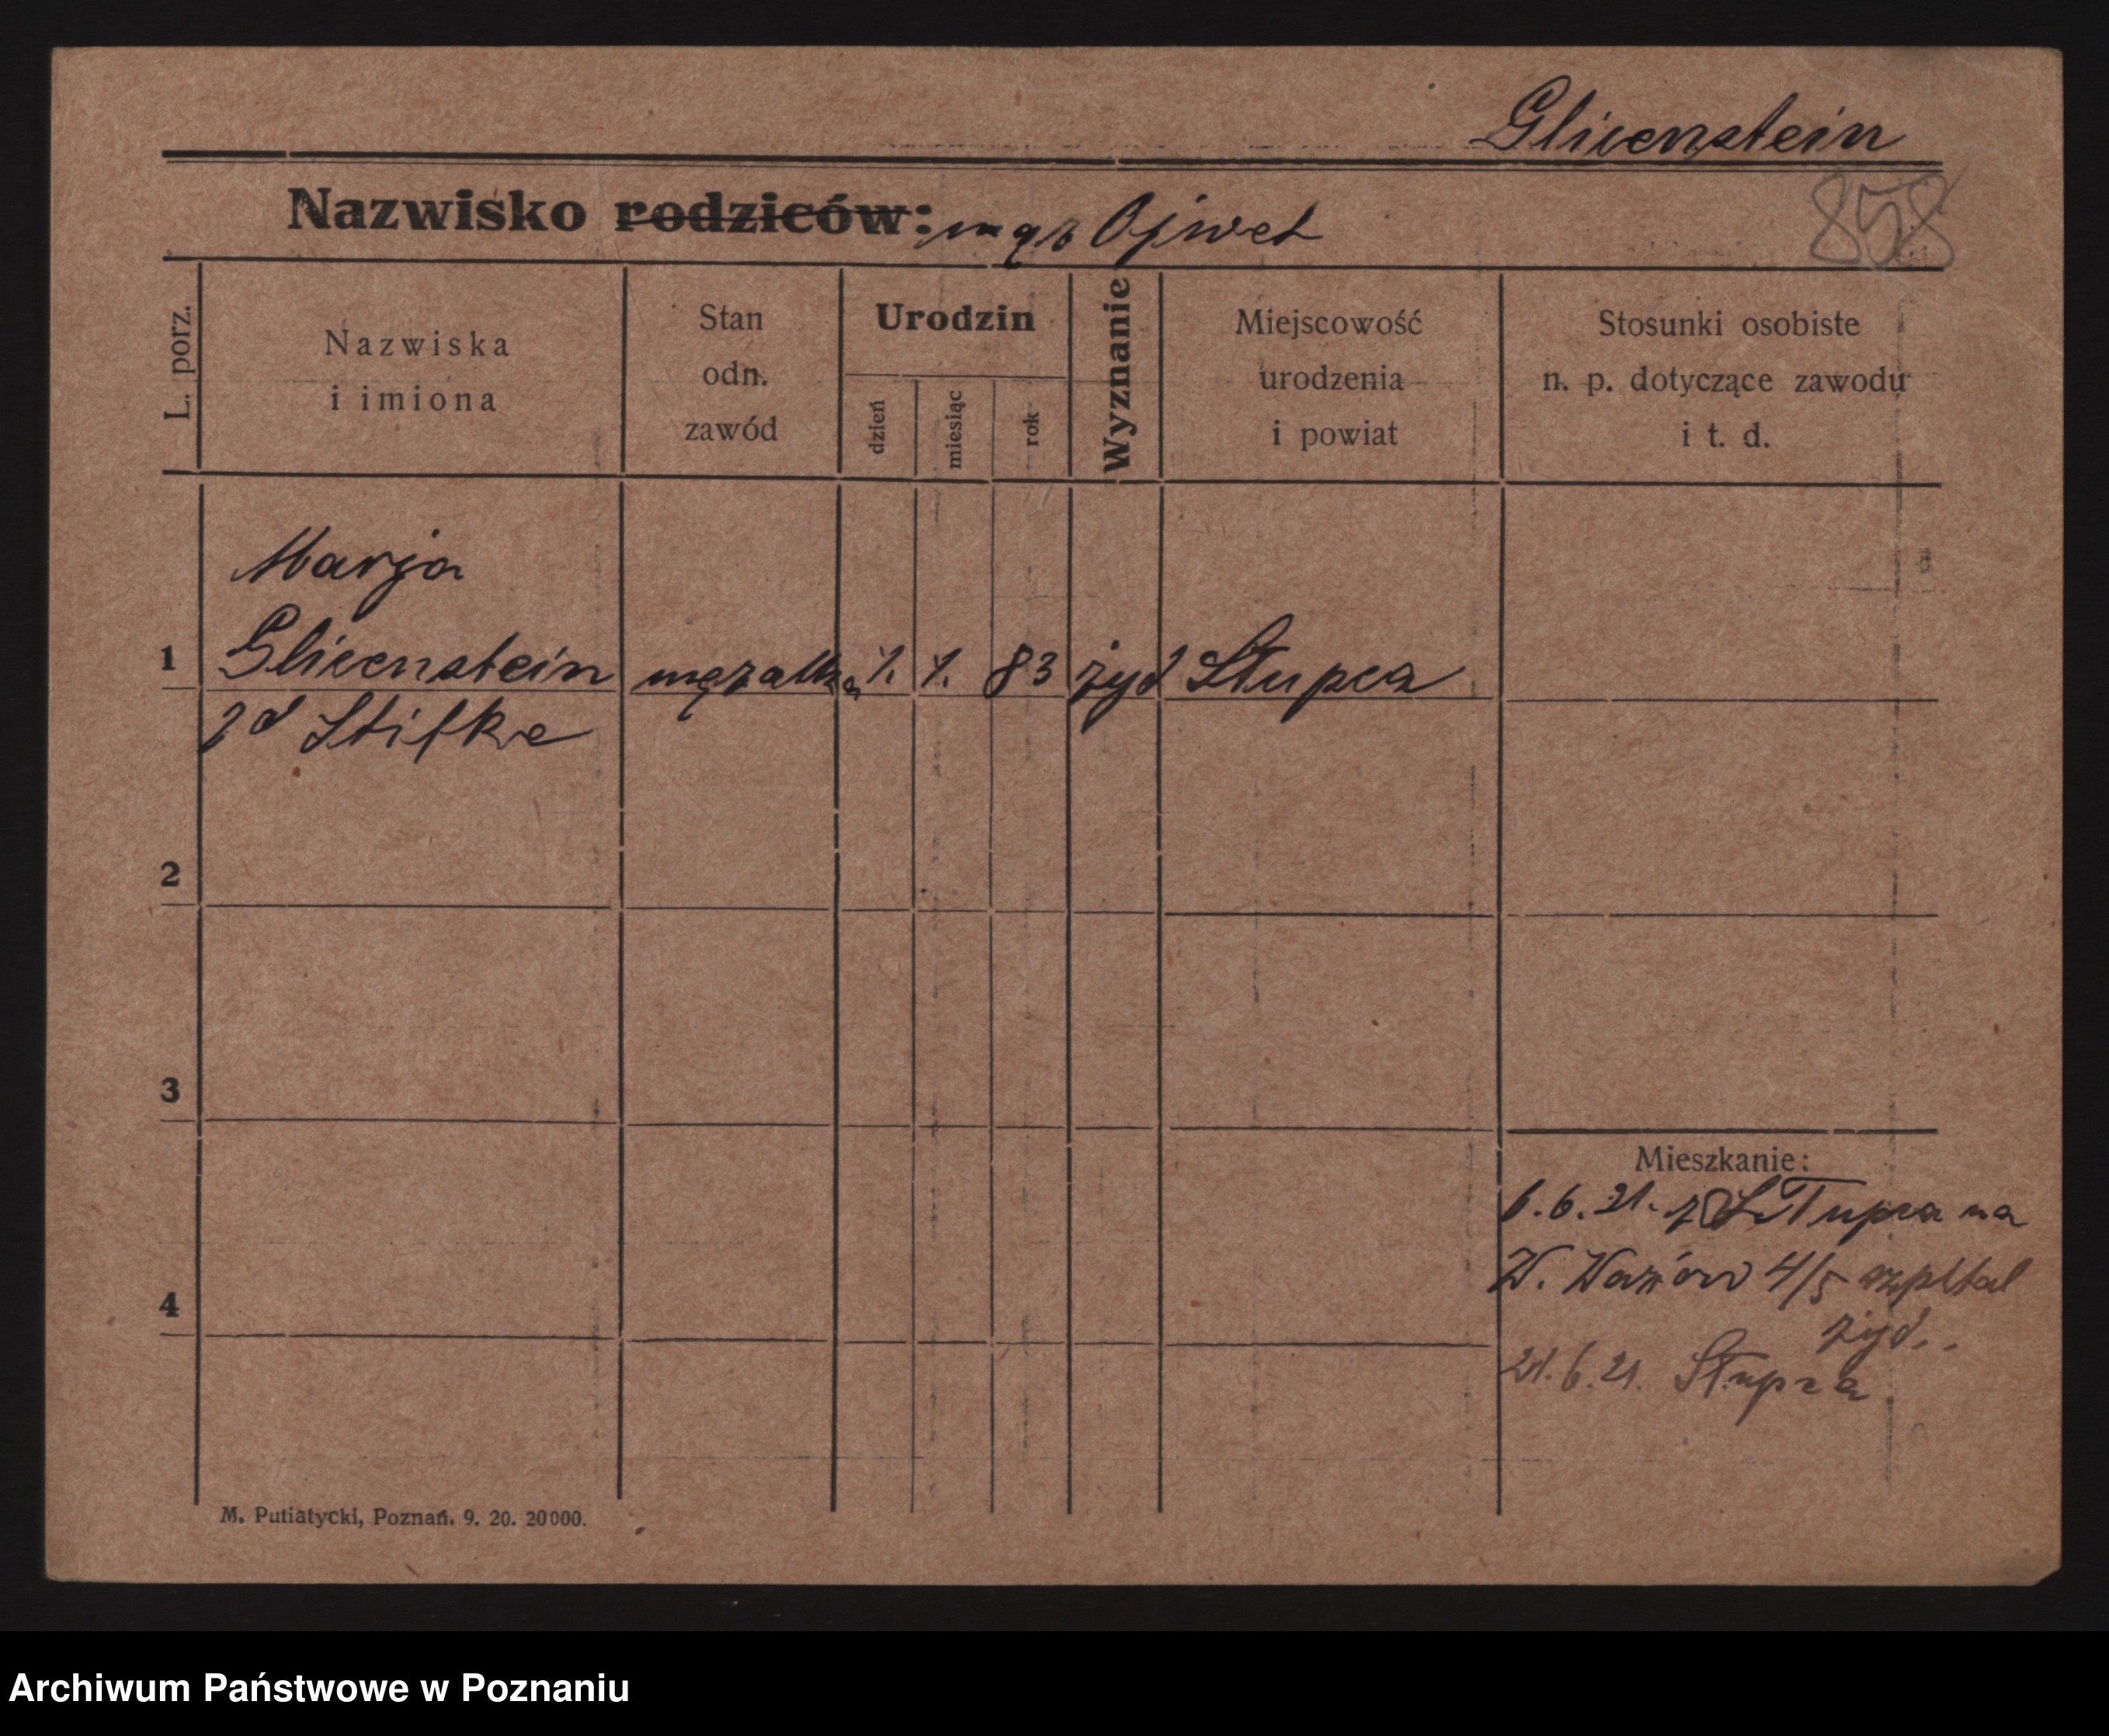 Glicenstein
Nazwisko rodziców: mąż Ojwet
858
L. porz.
Nazwiska
i imiona
Stan
odn.
zawód
Urodzin
dzień
miesiąc
rok
Wyznanie
Miejscowość
urodzenia
i powiat
Stosunki osobiste
n. p. dotyczące zawodu
i t. d.
Marja
1 Glicenstein mężatka 1. 1. 83 żyd Słupca
zd Stifke
2
3
4
Mieszkanie:
6.6.21. z Słupca na
W. 4/5 szpital
żyd.
21.6.21. Słupca
M. Putiatycki, Poznań. 9. 20. 20000.
Archiwum Państwowe w Poznaniu